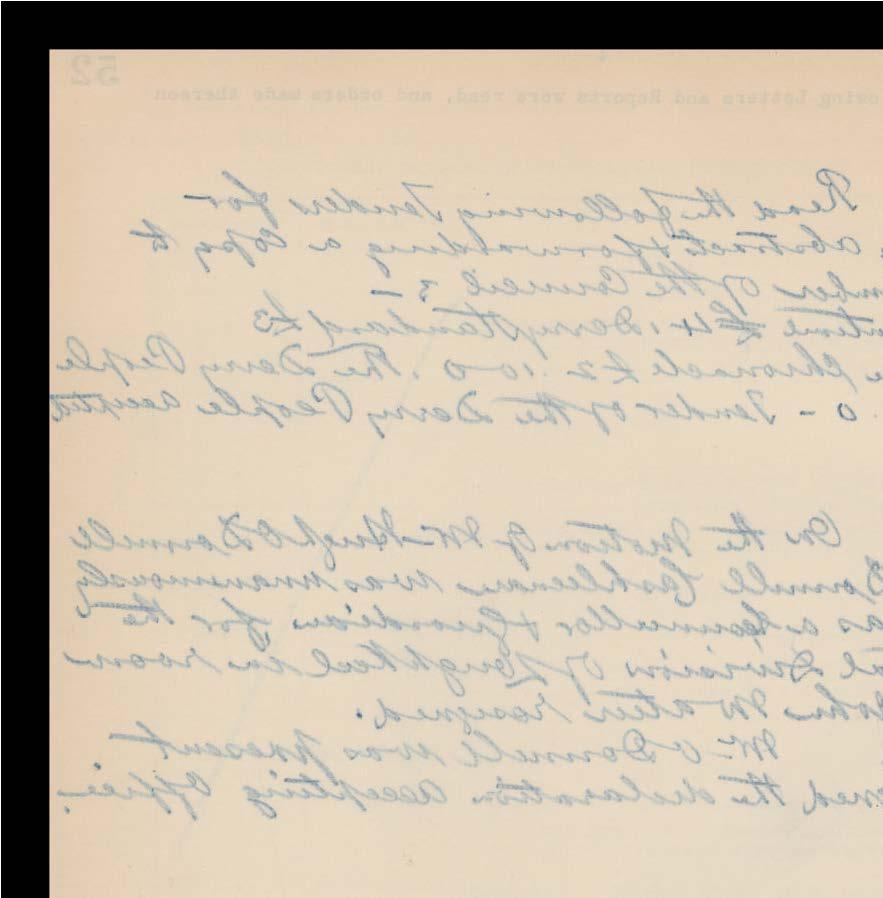 52
owing Letters and Reports were read, and orders made thereon
Read the following Tenders for
abstract & forwarding a copy to
mber of the Council
£4. Derry Standard £3
Chronicle £2.10.0. The Derry People
0 - Tender of the Derry People accepted
On the Motion of Mr Hugh O'Donnell
Donnell Cashleenan was unanimously
as a Councillor & Guardian for the
al Division of Loughkeel in room
John resigned.
Mr O Donnell was present
ned the declaration accepting Office.